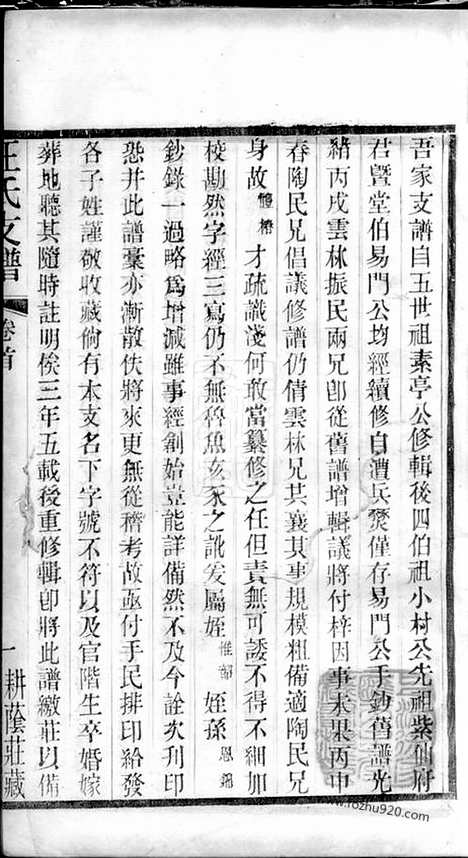 吾家支譜自五世祖素亭公修輯後四伯祖小村公先祖紫仙府
君暨堂伯易門公均經續修自遭兵燹僅存易門公手鈔舊譜光
緒丙戌雲林振民兩兄卽從舊譜增輯議將付梓因事未果丙申
春陶民兄倡議修譜仍倩雲林兄共襄其事規模粗備適陶民兄
身故 椿 才疏識淺何敢當纂修之任但責無可諉不得不細加
校勘然字經三寫仍不無魯魚亥豕之訛爰屬姪 惟 姪孫 恩錫
鈔錄一過略為增減雖事經創始豈能詳備然不及今詮次刊印
恐并此譜稾亦漸散佚將來更無從稽考故亟付手民排印給發
各子姓謹敬收藏倘有本支名下字號不符以及官階生卒婚嫁
葬地聽其隨時註明俟三年五載後重修輯卽將此譜繳莊以備
汪氏支譜 卷首 一 耕蔭莊藏
www.rozhu920.com